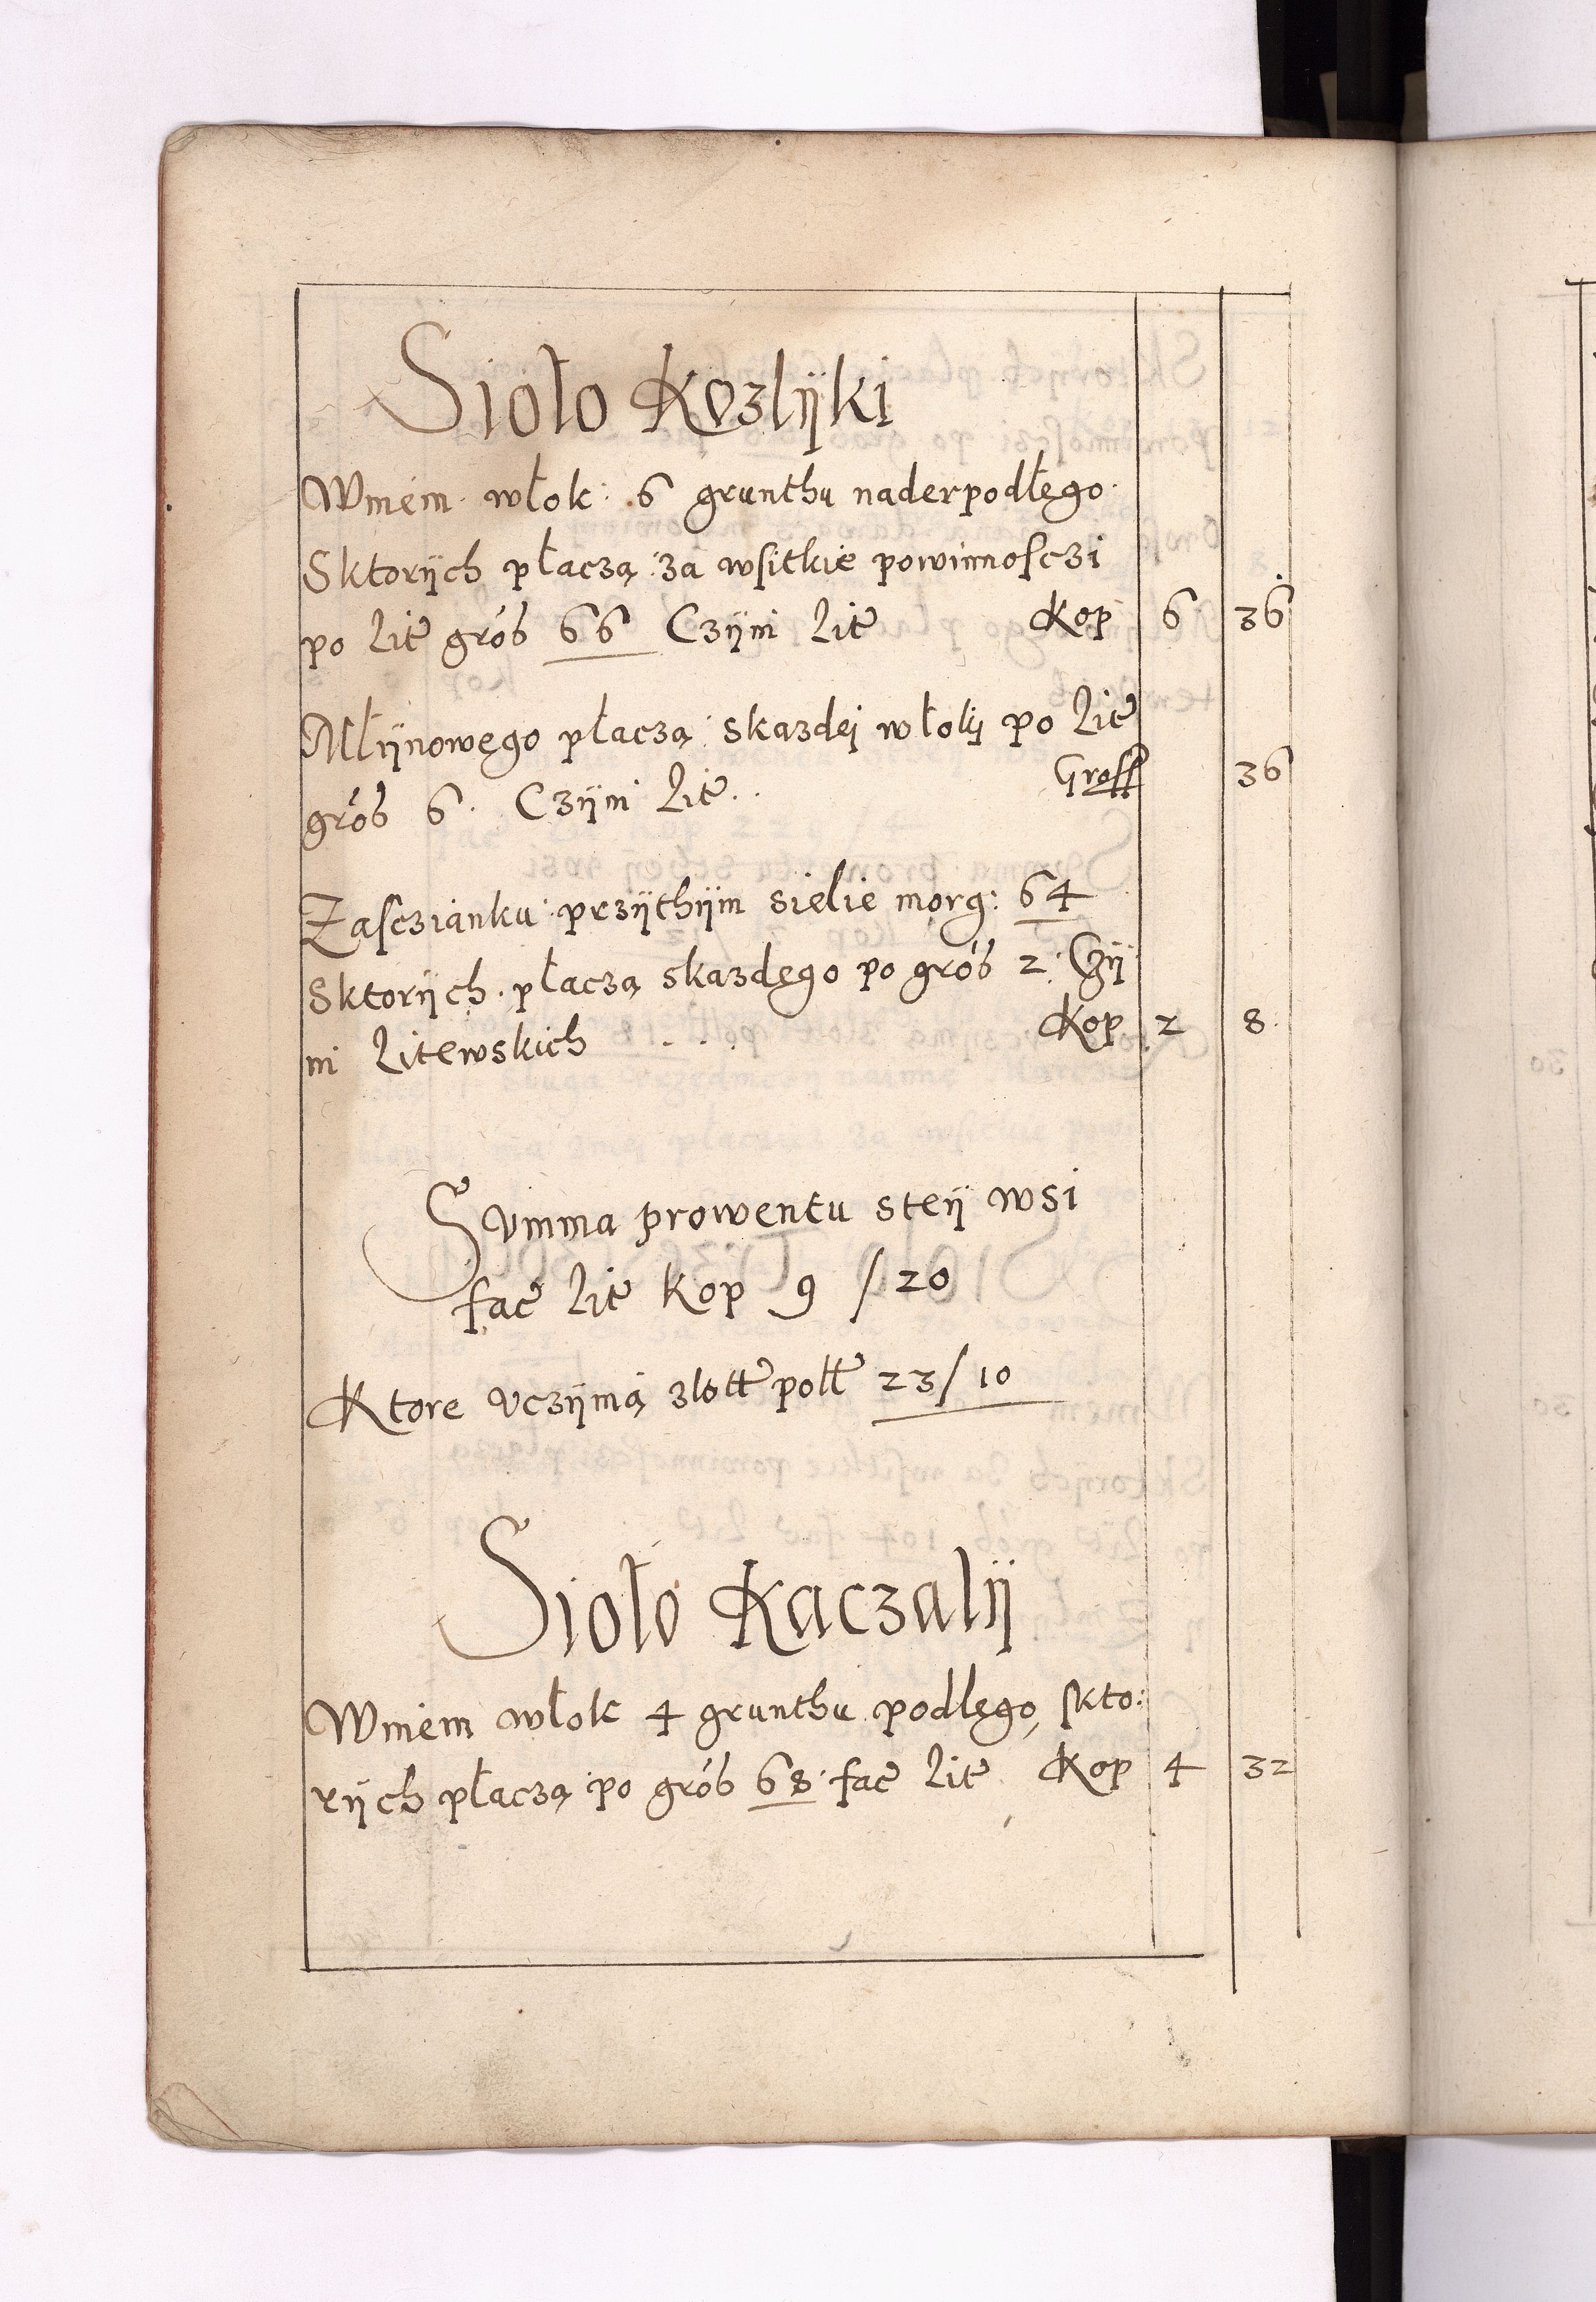 Sioło Kozlÿki
Wniem włok: 6 grunthu naderpodłego
Sktorÿch płaczą za wsitkie powinnosczi
po lit grós 66 Czÿni lit Kop 6 36
Młÿnowego płaczą skazdej włoki po lit
grós 6. Czÿni lit.. Gross 36
Zasczianku przÿthÿm sielie morg: 64
Sktorÿch płaczą skazdego po grós 2. Czÿ
ni litewskich . . . Kop 2 8
Summa prowentu steÿ wsi
fac lit kop 9 / 20
Ktore uczÿnią złott poll 23/10
Sioło Kaczalÿ
Wniem włok 4 grunthu podłego, skto:
rÿch płaczą po grós 68 fac lit Kop 4 32